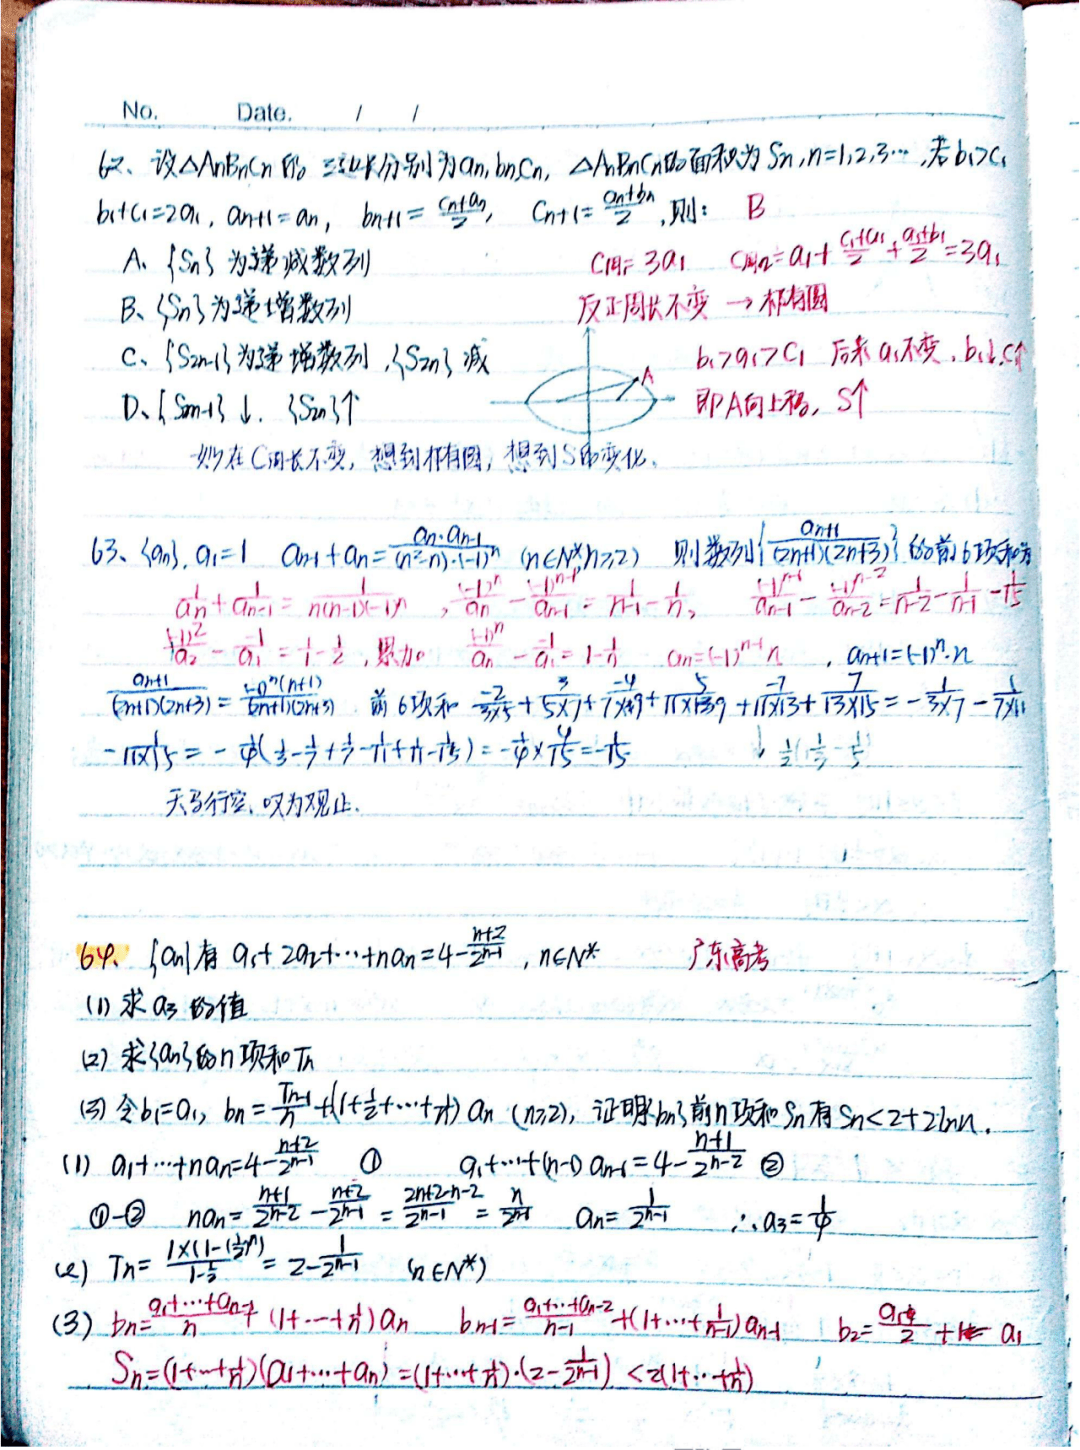 No. Date. / /
62、设△AnBnCn的三边长分别为an,bn,cn, △AnBnCn的面积为Sn,n=1,2,3…,若b₁>c₁
b₁+c₁=2a₁, an+1=an, bn+1=(cn+an)/2, Cn+1=(an+bn)/2,则: B
A、{Sn}为递减数列 C周1=3a₁ C周2=a₁+(c₁+a₁)/2+(a₁+b₁)/2=3a₁
B、{Sn}为递增数列 反正周长不变 → 椭圆
C、{S2n-1}为递增数列,{S2n}减 b₁>a₁>C₁ 后来a₁不变,b₁↓,C↑
D、{S2n-1}↓. {S2n}↑ A 即A向上移, S↑
妙在C周长不变, 想到椭圆, 想到S的变化.
63、{an}, a₁=1 an-1+an=(an·an-1)/((n²-n)·(-1)ⁿ) (n∈N*,n≥2) 则数列{an+1/((2n+1)(2n+3))}的前6项和为
1/an+1/an-1=1/(n(n-1)(-1)ⁿ), (-1)ⁿ/an-(-1)ⁿ⁻¹/an-1=1/(n-1)-1/n, (-1)ⁿ⁻¹/an-1-(-1)ⁿ⁻²/an-2=1/(n-2)-1/(n-1) -1/15
(-1)²/a₂-(-1)/a₁=1/1-1/2,累加 (-1)ⁿ/an-(-1)/a₁=1-1/n an=(-1)ⁿ⁻¹n , an+1=(-1)ⁿ·n
an+1/((2n+1)(2n+3))=(-1)ⁿ(n+1)/((2n+1)(2n+3)) 前6项和 -2/(3×5)+3/(5×7)+-4/(7×9)+5/(11×9)+-7/(11×13)+7/(13×15)=-1/(3×7)-1/(7×11)
-1/(11×15)=-1/4(1/3-1/7+1/7-1/11+1/11-1/15)=-1/4×4/15=-1/15 ↓ 1/2(1/3-1/5)
天马行空,叹为观止.
64、{an}有 a₁+2a₂+…+nan=4-(n+2)/2ⁿ⁻¹, n∈N* 广东高考
(1)求a₃的值
(2)求{an}的n项和Tn
(3)令b₁=a₁, bn=Tn-1/n+(1+1/2+…+1/n)an (n≥2), 证明{bn}前n项和Sn有Sn<2+2lnn.
(1) a₁+…+nan=4-(n+2)/2ⁿ⁻¹ ① a₁+…+(n-1)an-1=4-(n+1)/2ⁿ⁻² ②
①-② nan=(n+1)/2ⁿ⁻²-(n+2)/2ⁿ⁻¹=(2n+2-n-2)/2ⁿ⁻¹=n/2ⁿ⁻¹ an=1/2ⁿ⁻¹ ∴a₃=1/4
(2) Tn=1×(1-(1/2)ⁿ)/(1-1/2)=2-1/2ⁿ⁻¹ (n∈N*)
(3) bn=(a₁+…+an-1)/n+(1+…+1/n)an bn-1=(a₁+…+an-2)/(n-1)+(1+…+1/(n-1))an-1 b₂=a₁/2+ a₁
Sn=(1+…+1/n)(a₁+…+an)=(1+…+1/n)·(2-1/2ⁿ⁻¹)<2(1+…+1/n)